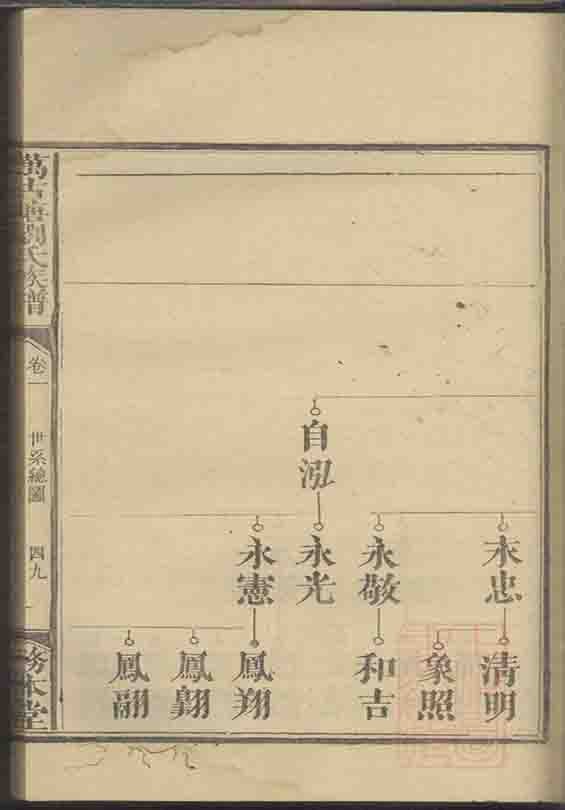 自泓
永忠
永敬
永光
永憲
清明
象照
和吉
鳳翔
鳳
鳳
劉氏族譜
卷一
世系總圖
四九
務本堂